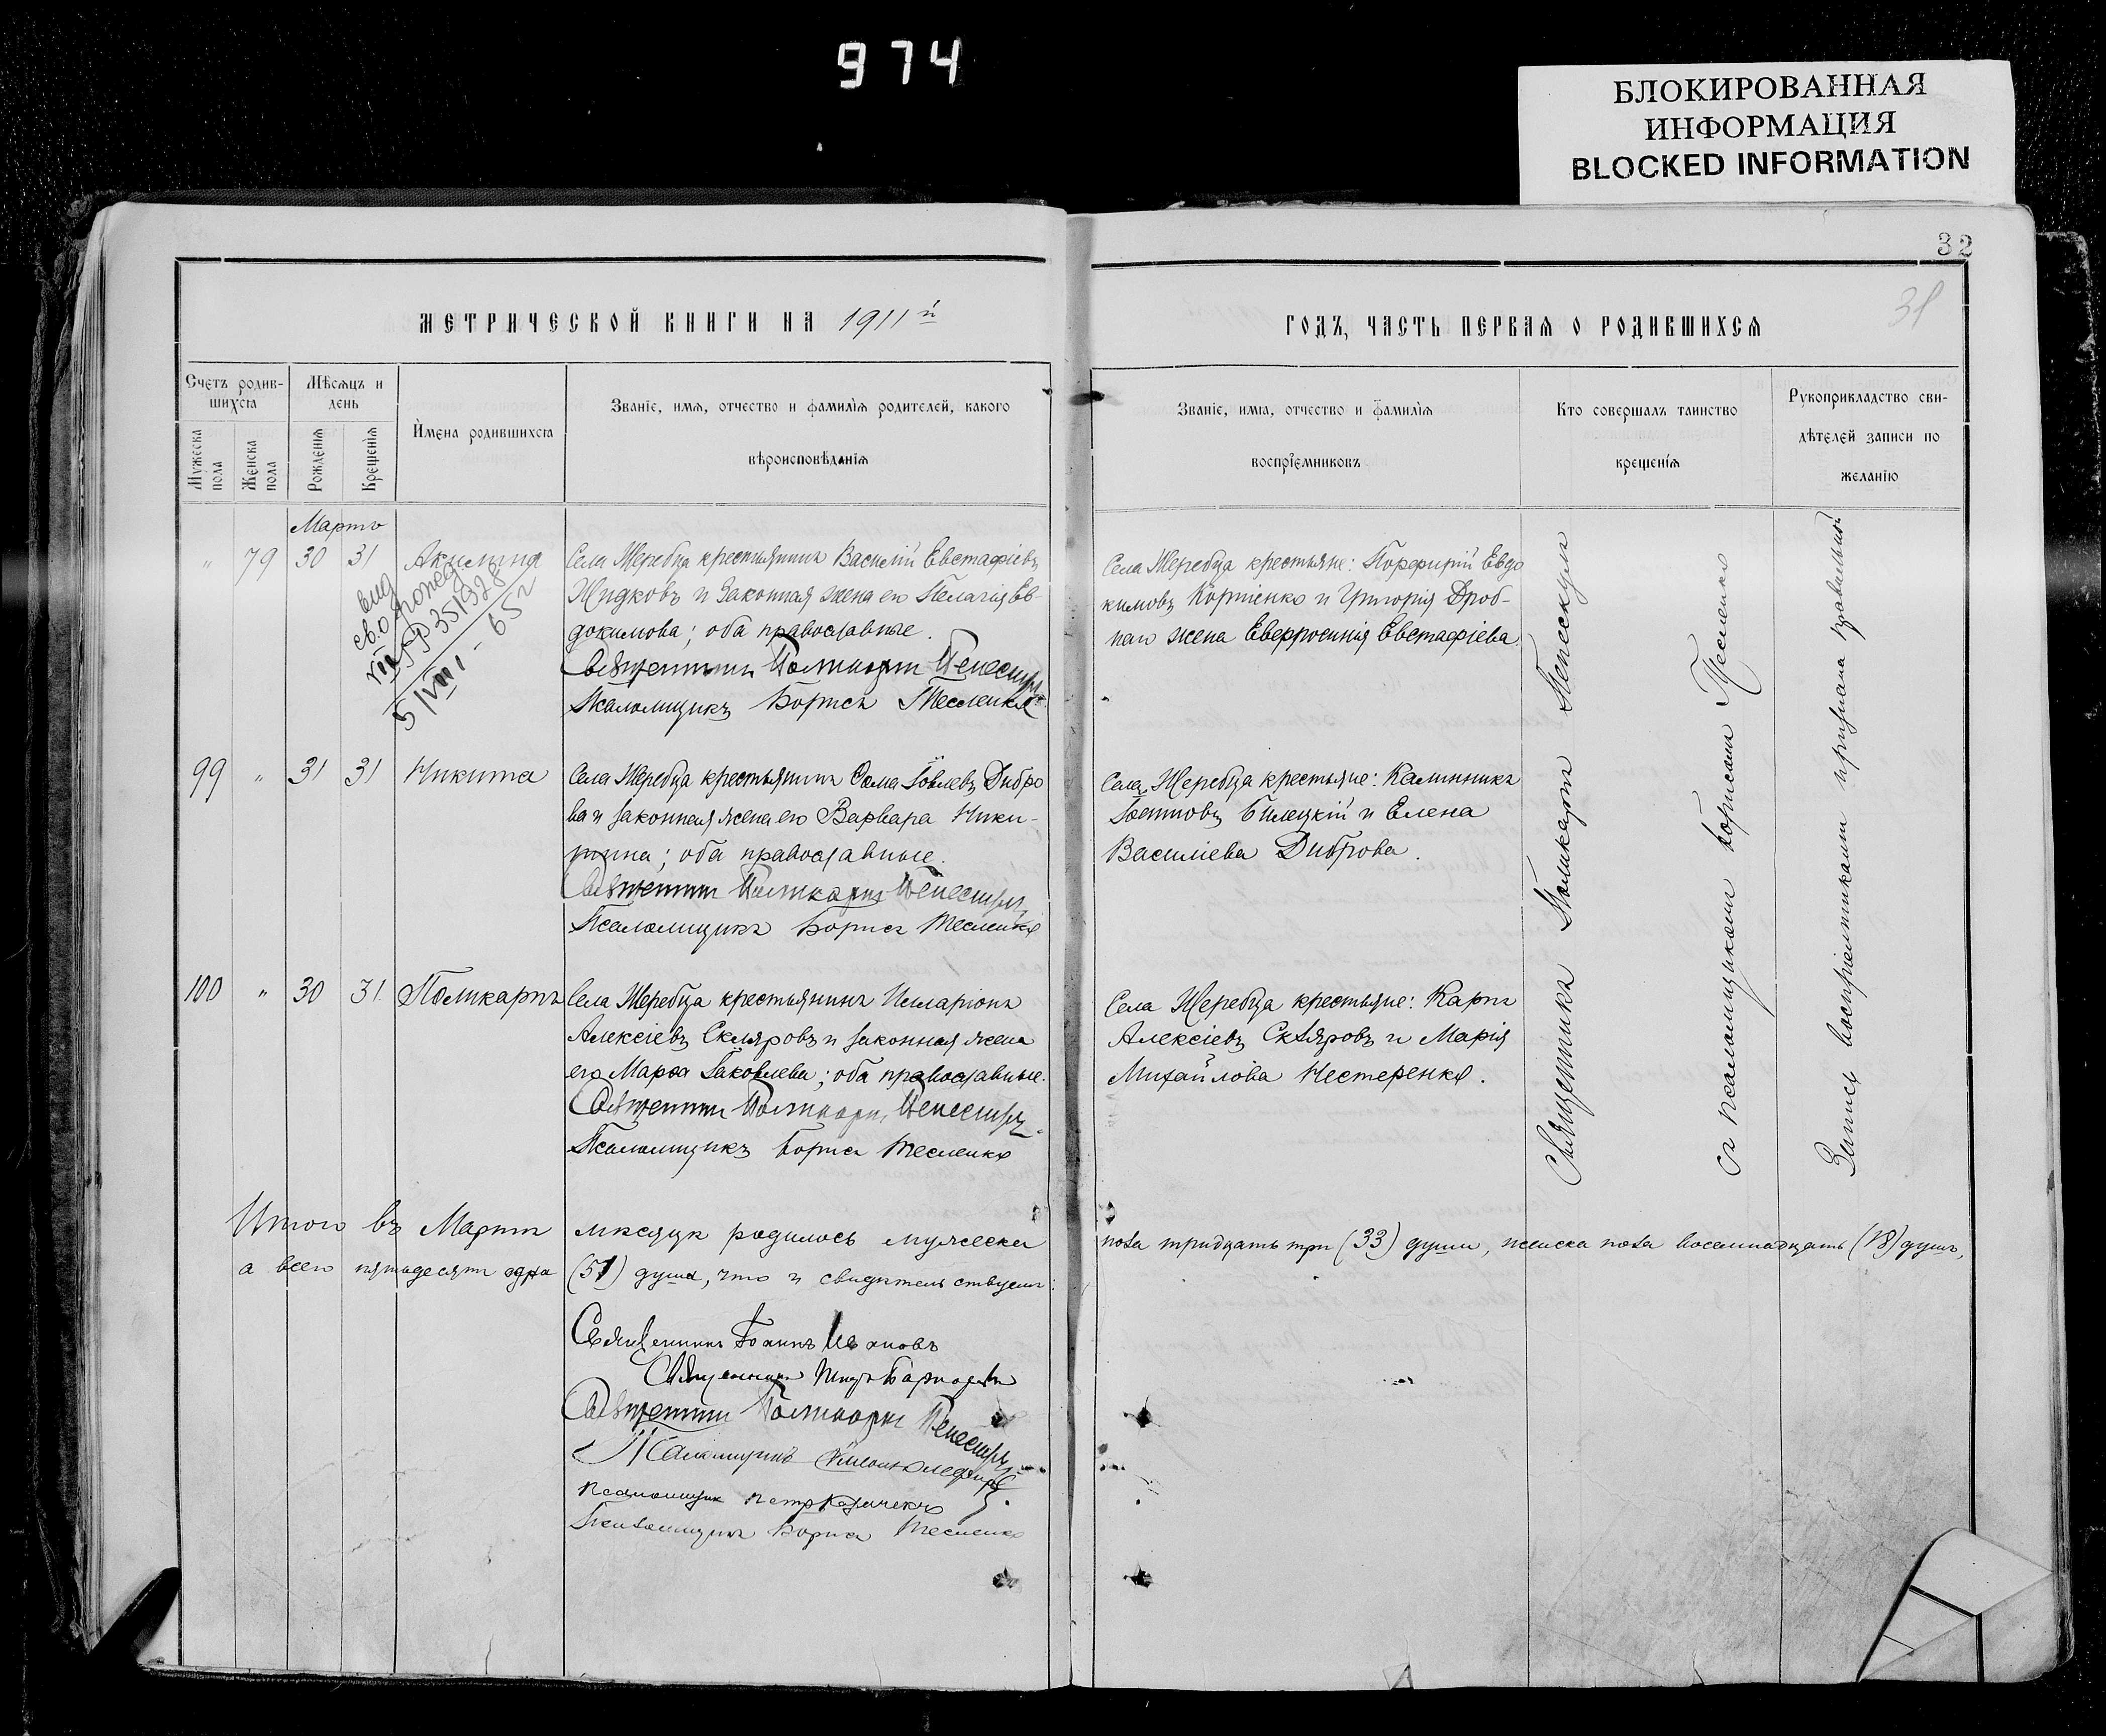 974
БЛОКИРОВАННАЯ
ИНФОРМАЦИЯ
BLOCKED INFORMATION
32
31
МЕТРИЧЕСКОЙ КНИГИ НА 1911й
ГОДЪ, ЧАСТЬ ПЕРВАЯ О РОДИВШИХСЯ
Счетъ родив-
шихся
Мужеска пола
Женска пола
Мѣсяцъ и
день
Рожденія
Крещенія
Имена родившихся
Званіе, имя, отчество и фамилія родителей, какого
вѣроисповѣданія
Званіе, имя, отчество и фамилія
воспріемниковъ
Кто совершалъ таинство
крещенія
Рукоприкладство сви-
дѣтелей записи по
желанію
Мартъ
" 79 30 31 Акилина
вид
св. о рожд
351328
5/VIII - 65 г
Села Жеребца крестьянинъ Василій Евстафіевъ
Жидковъ и законная жена его Пелагія Ев-
докимова; оба православные.
Священникъ Поликарпъ
Псаломщикъ Борисъ Тесленко
Села Жеребца крестьяне: Порфирій Евдо
кимовъ Корніенко и Григорія Дроб-
жена Евфросинія Евстафіева.
99 " 31 31 Никита
Села Жеребца крестьянинъ Сама Іовлевъ Дибро
ва и законная жена его Варвара Ники-
тина; оба православные.
Священникъ Поликарпъ
Псаломщикъ Борисъ Тесленко
Села Жеребца крестьяне: Калинникъ
Билецкій и Елена
Василіева Диброва.
100 " 30 31 Поликарпъ
Села Жеребца крестьянинъ Иларіонъ
Алексіевъ Скляровъ и законная жена
его Марѳа Іаковлева; оба православные.
Священникъ Поликарпъ
Псаломщикъ Борисъ Тесленко
Села Жеребца крестьяне: Карпъ
Алексіевъ Скляровъ и Марія
Михайлова Нестеренко.
Священникъ Поликарпъ
съ псаломщикомъ Борисомъ Тесленко
Запись воспріемниками признана правильной
Итого въ Мартѣ мѣсяцѣ родилось мужеска пола тридцать три (33) души, женска пола восемнадцать (18) душъ,
а всего пятьдесятъ одна (51) душа, что и свидѣтельствуемъ:
Священникъ Іоаннъ Ивановъ
Священникъ
Священникъ Поликарпъ
Псаломщикъ
Псаломщикъ Петръ
Псаломщикъ Борисъ Тесленко